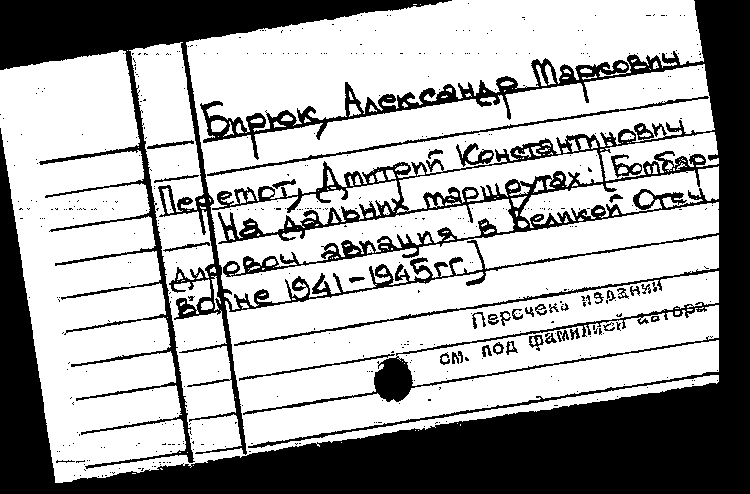 Бирюк, Александр Маркович.
Перемот, Дмитрий Константинович.
На дальних маршрутах: [Бомбар-
дировоч. авиация в Великой Отеч.
войне 1941-1945гг.]
Перечень изданий
см. под фамилией автора